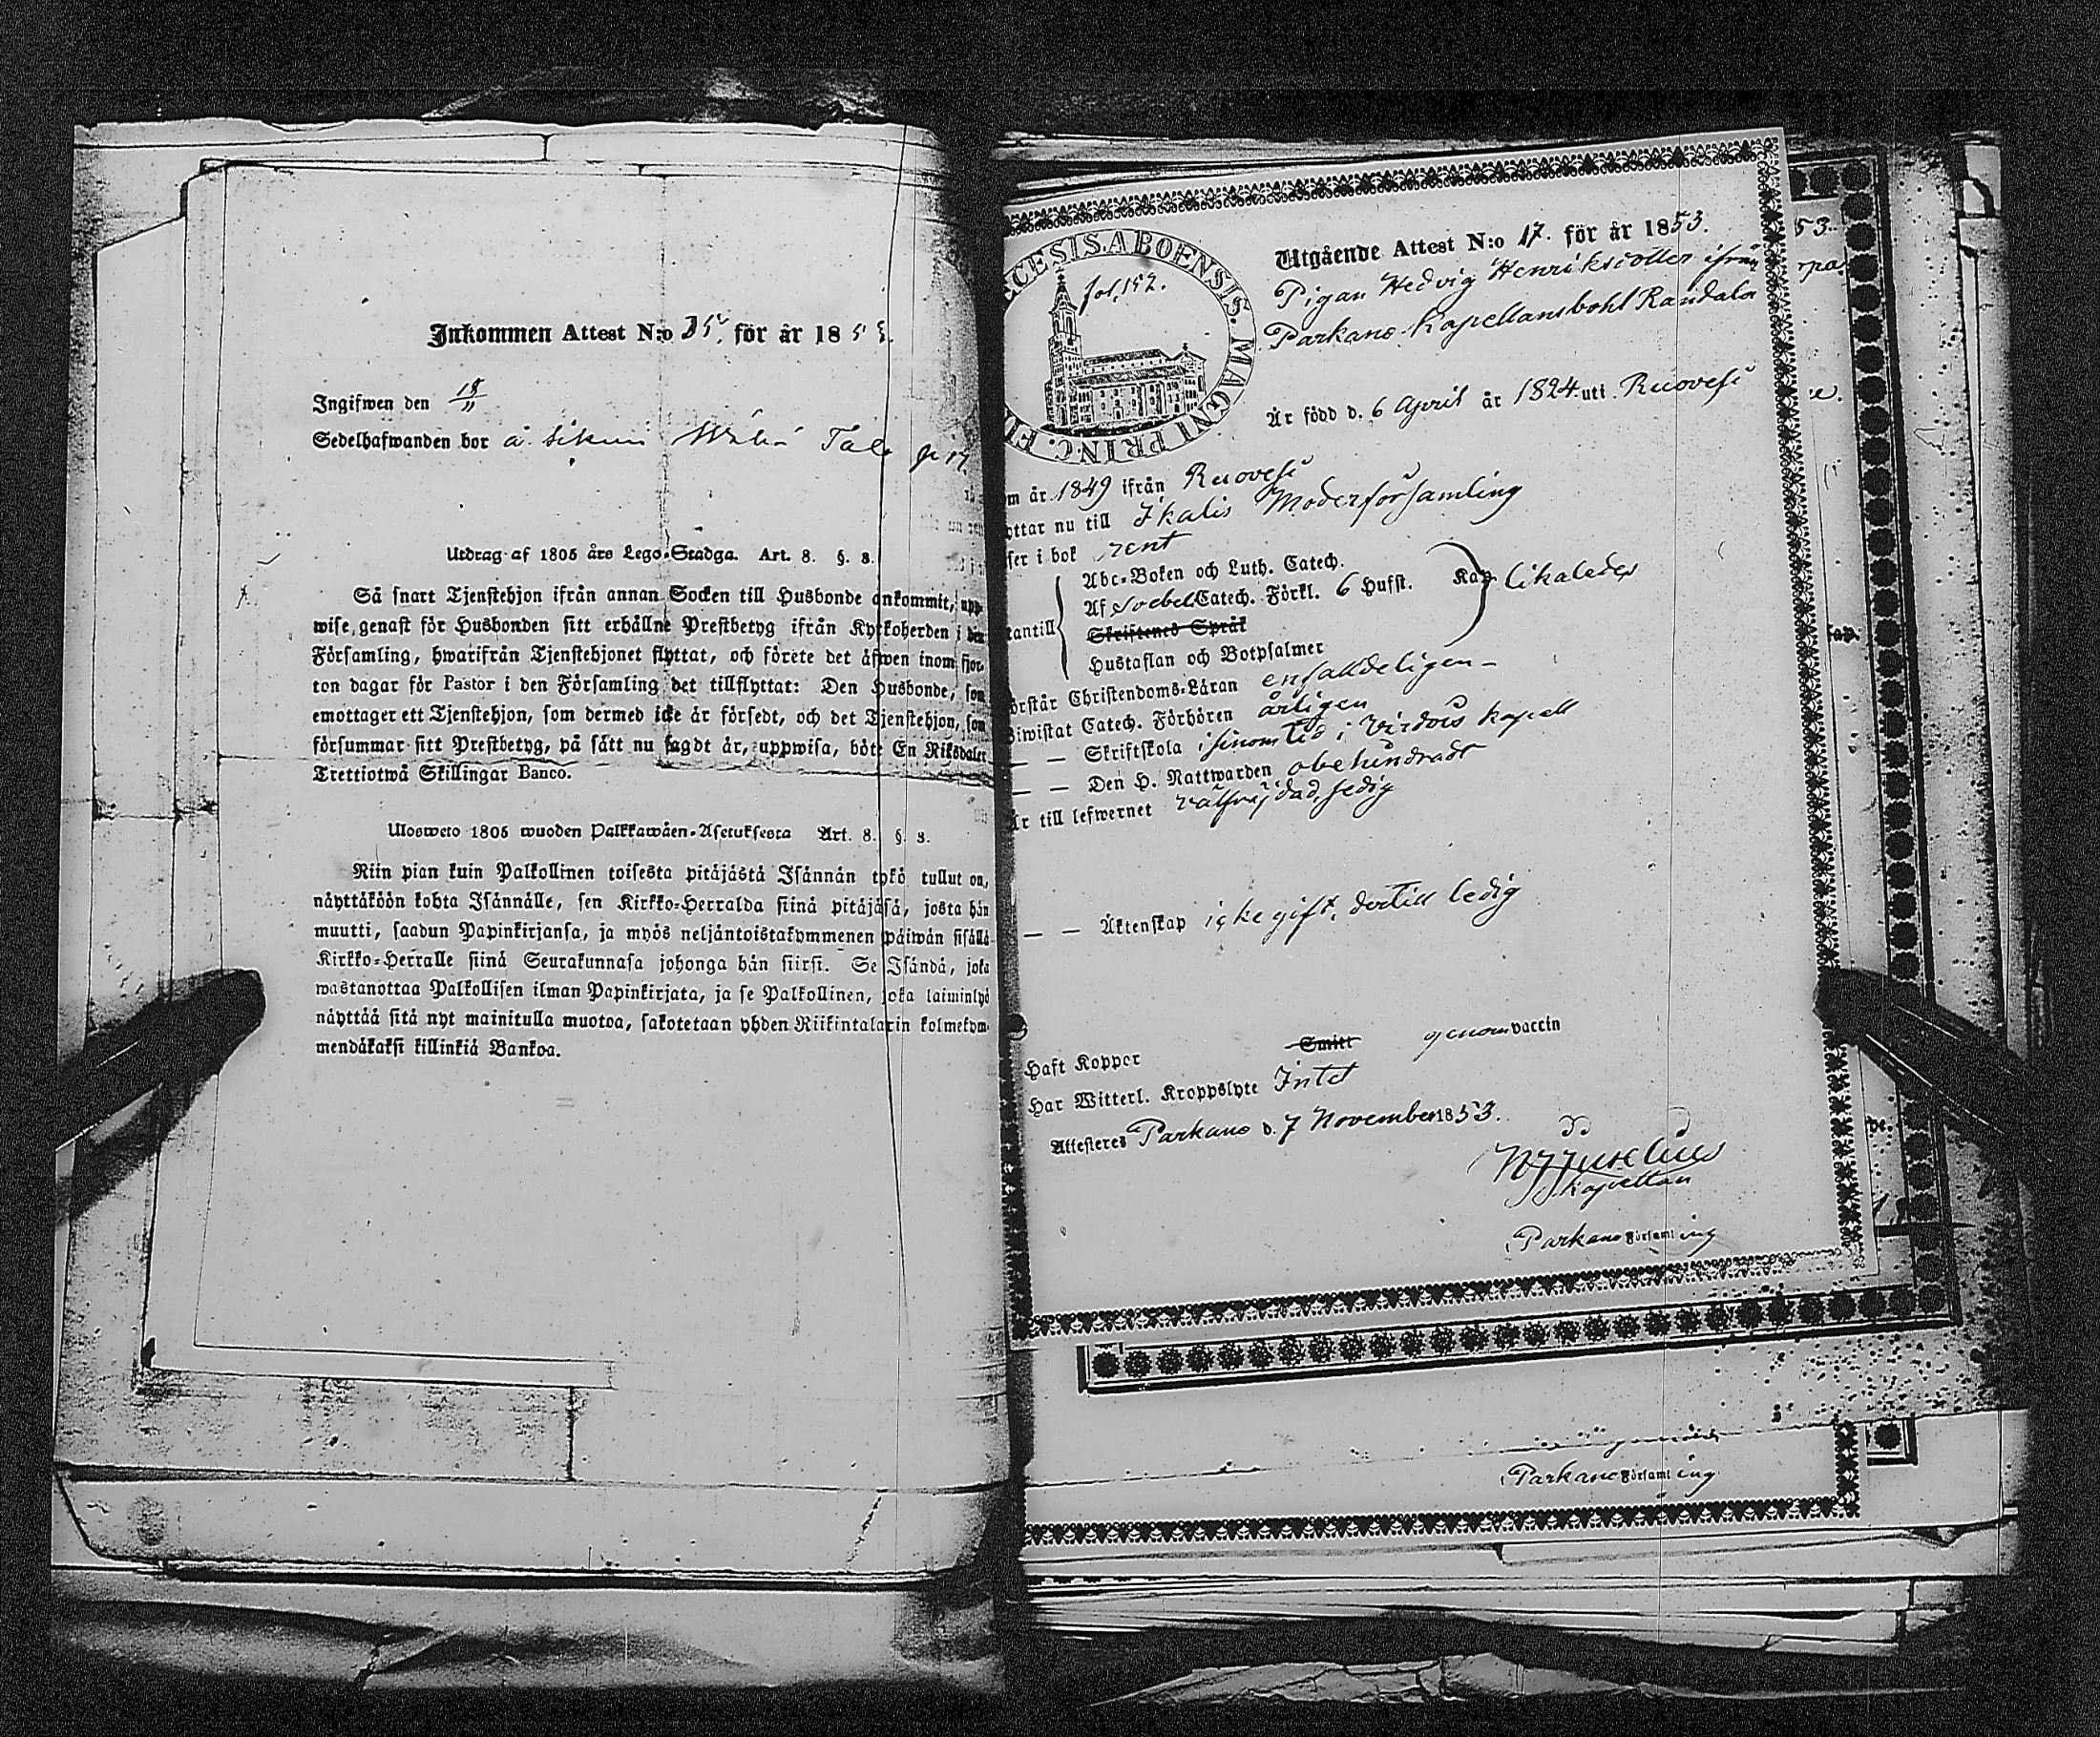 Inkommen Attest N:o 35. för år 1853.
Ingifwen den 18/11
Sedelhafwanden bor å
Utdrag af 1805 års Lego-Stadga. Art. 8. §. 3.
Så snart Tjenstehjon ifrån annan Socken till Husbonde ankommit, upp-
wise, genast för Husbonden sitt erhållne Prestbetyg ifrån Kyrkoherden i den
Församling, hwarifrån Tjenstehjonet flyttat, och förete det äfwen inom fjor-
ton dagar för Pastor i den Församling det tillflyttat: Den Husbonde, som
emottager ett Tjenstehjon, som dermed icke är försedt, och det Tjenstehjon, som
försummar sitt Prestbetyg, på sätt nu sagdt är, uppwisa, böte En Riksdaler
Trettiotwå Skillingar Banco.
Ulosweto 1805 wuoden Palkkawäen-Asetuksesta Art. 8. §. 3.
Niin pian kuin Palkollinen toisesta pitäjästä Isännän tykö tullut on,
näyttäköön kohta Isännälle, sen Kirkko-Herralda siinä pitäjäsä, josta hän
muutti, saadun Papinkirjansa, ja myös neljäntoistakymmenen päiwän sisällä
Kirkko-Herralle siinä Seurakunnasa johonga hän siirsi. Se Isändä, joka
wastanottaa Palkollisen ilman Papinkirjata, ja se Palkollinen, joka laiminlyö
näyttää sitä nyt mainitulla muotoa, sakotetaan yhden Riikintalarin kolmekym-
mendäkaksi killinkiä Bankoa.
ECESIS ABOENSIS. MAGNI PRINC. FI
fol. 152.
Utgående Attest N:o 17. för år 1853.
Pigan Hedvig Henriksdotter ifrån
Parkano Kapellansbohl Randala
Är född d. 6 April år 1824 uti Ruovesi
m år 1849 ifrån Ruovesi
yttar nu till Ikalis Moderförsamling
ser i bok rent
Abc-Boken och Luth. Catech.
Af Svebel. Catech. Förkl. 6 Hufst. Kap. likaledes
tantill Skriftenes Språk
Hustaflan och Botpsalmer
örstår Christendoms-Läran enfaldeligen -
Biwistat Catech. Förhören årligen
— — Skriftskola i sinom tid i Virdois kapell
— — Den H. Nattwarden obehindradt
Är till lefwernet välfrejdad, sedig
— — Äktenskap icke gift, dertill ledig
Haft Koppor Smitt genom vaccin
Har Witterl. Kroppslyte Intet
Attesteres Parkano d. 7 November 1853.
Kapellan
Parkano Församling
Parkano Församling